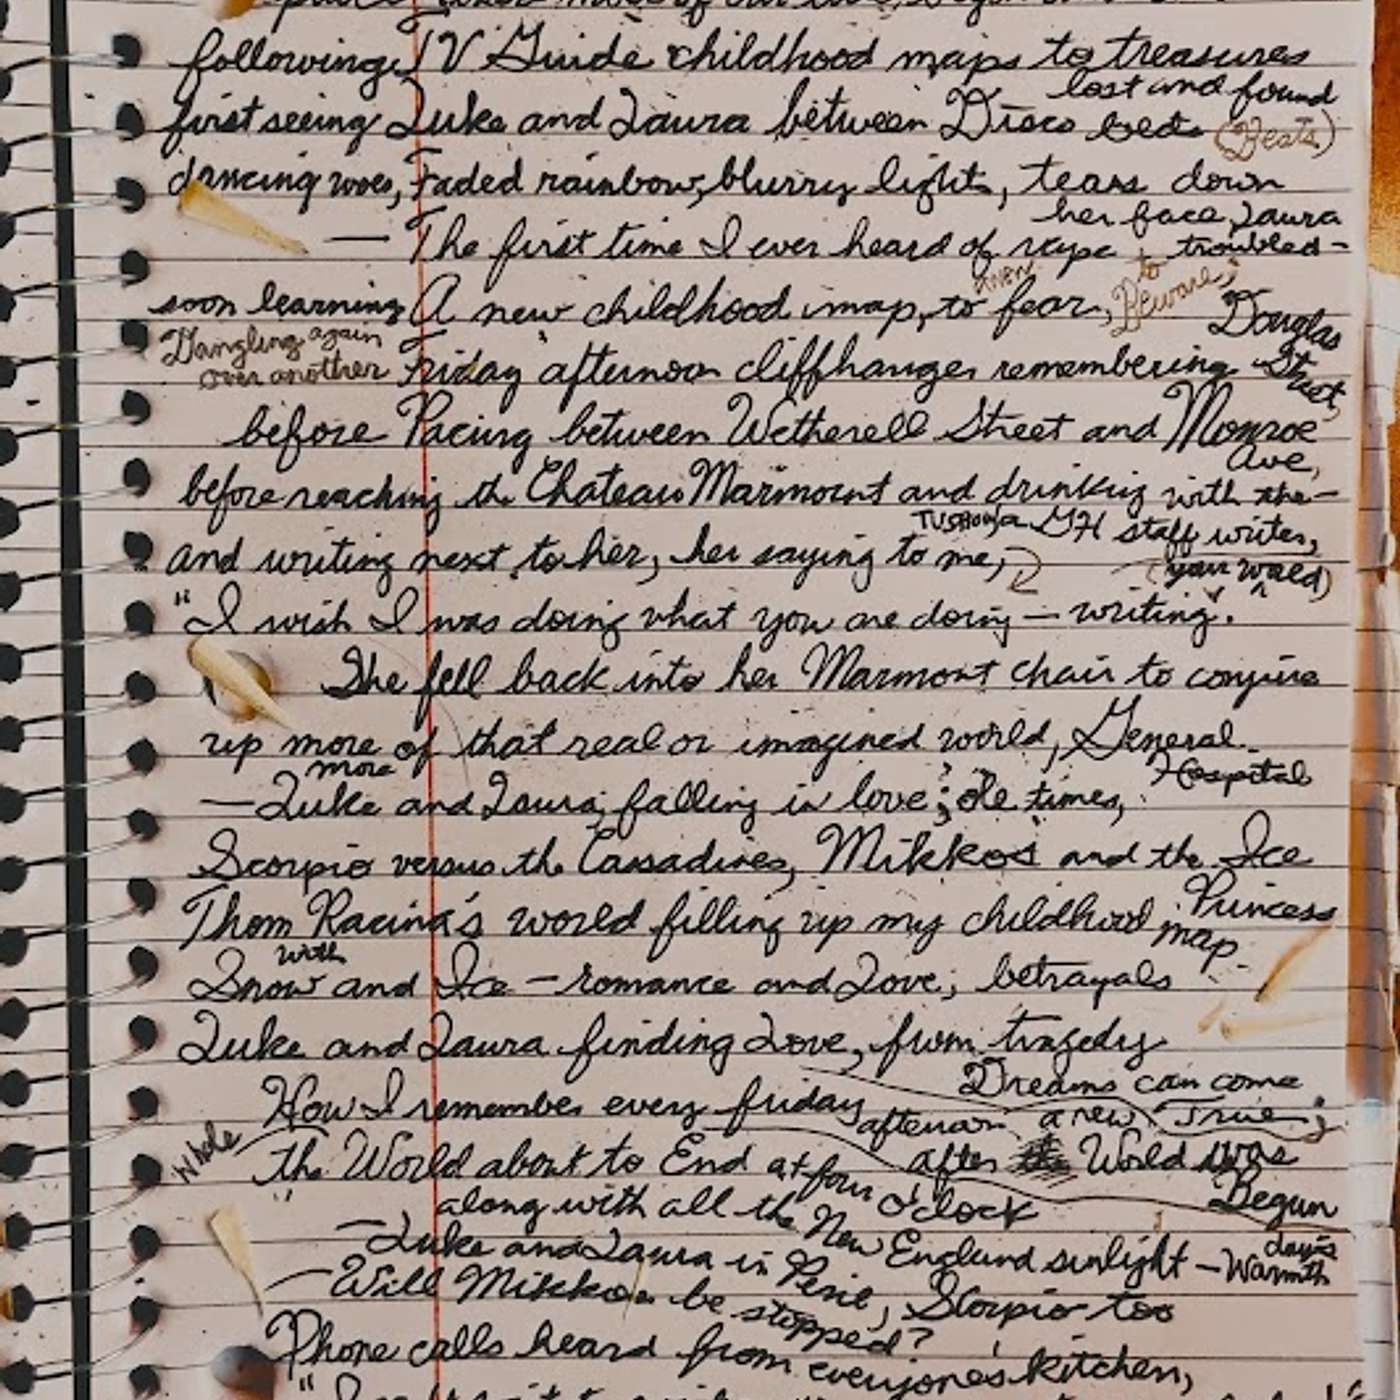 following TV Guide childhood maps to treasures
lost and found
first seeing Luke and Laura between Disco beats (Beats)
dancing woes, Faded rainbows, blurry lights, tears down
her face, Laura
— The first time I ever heard of rape troubled —
soon learning A new childhood map, to fear, to Beware,
new
Dangling again
over another
Friday afternoon cliffhanger remembering Douglas
Street,
before Pacing between Wetherell Street and Monroe
Ave,
before reaching the Chateau Marmount and drinking with the —
GH staff writer,
and writing next to her, her saying to me, (your world)
"I wish I was doing what you are doing — writing.
She fell back into her Marmont chair to conjure
up more of that real or imagined world, General
Hospital
more
— Luke and Laura, falling in love; ole times,
Scorpio versus the Cassadines, Mikkos and the Ice
Princess
Thom Racina's world filling up my childhood map.
with
Snow and Ice — romance and Love; betrayals
Luke and Laura finding Love, from tragedy
Dreams can come
True;
How I remember every friday afternoon a new
Whole
the World about to End at four o'clock after World was
Begun
along with all the New England sunlight — Warmth
days
— Luke and Laura in Peril, Scorpio too
— Will Mikkos be stopped?
Phone calls heard from everyone's kitchen,